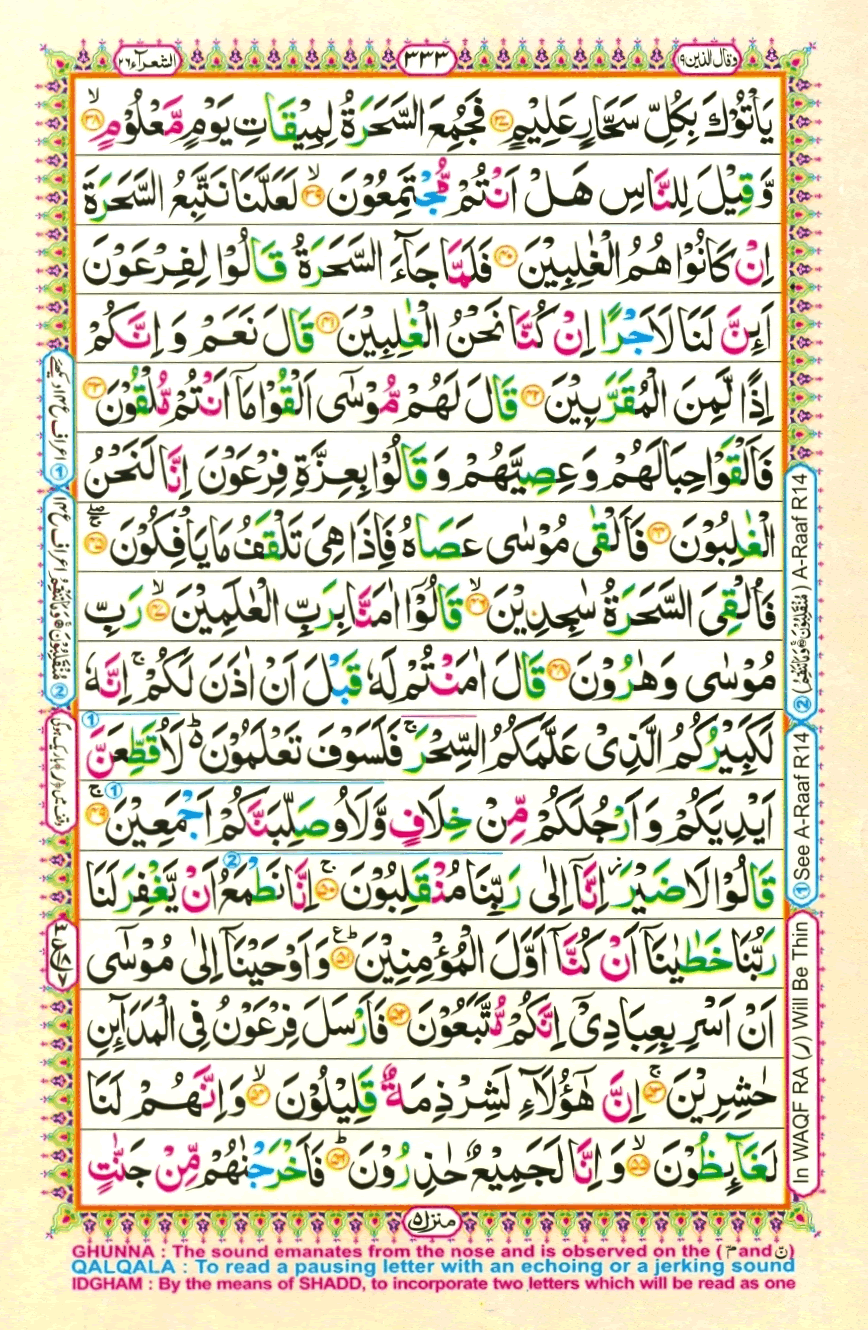 وقال الذین ۱۹
۳۳۳
الشعرآء ۲۶
یَاْتُوْكَ بِكُلِّ سَحَّارٍ عَلِیْمٍ ۝۳۷ فَجُمِعَ السَّحَرَةُ لِمِیْقَاتِ یَوْمٍ مَّعْلُوْمٍ ۝۳۸ۙ
وَّ قِیْلَ لِلنَّاسِ هَلْ اَنْتُمْ مُّجْتَمِعُوْنَ ۝۳۹ۙ لَعَلَّنَا نَتَّبِعُ السَّحَرَةَ
اِنْ كَانُوْا هُمُ الْغٰلِبِیْنَ ۝۴۰ فَلَمَّا جَآءَ السَّحَرَةُ قَالُوْا لِفِرْعَوْنَ
اَىِٕنَّ لَنَا لَاَجْرًا اِنْ كُنَّا نَحْنُ الْغٰلِبِیْنَ ۝۴۱ قَالَ نَعَمْ وَ اِنَّكُمْ
اِذًا لَّمِنَ الْمُقَرَّبِیْنَ ۝۴۲ قَالَ لَهُمْ مُّوْسٰۤى اَلْقُوْا مَاۤ اَنْتُمْ مُّلْقُوْنَ ۝۴۳
فَاَلْقَوْا حِبَالَهُمْ وَ عِصِیَّهُمْ وَ قَالُوْا بِعِزَّةِ فِرْعَوْنَ اِنَّا لَنَحْنُ
الْغٰلِبُوْنَ ۝۴۴ فَاَلْقٰى مُوْسٰى عَصَاهُ فَاِذَا هِیَ تَلْقَفُ مَا یَاْفِكُوْنَ ۝۴۵
فَاُلْقِیَ السَّحَرَةُ سٰجِدِیْنَ ۝۴۶ۙ قَالُوْۤا اٰمَنَّا بِرَبِّ الْعٰلَمِیْنَ ۝۴۷ۙ رَبِّ
مُوْسٰى وَ هٰرُوْنَ ۝۴۸ قَالَ اٰمَنْتُمْ لَهٗ قَبْلَ اَنْ اٰذَنَ لَكُمْ ۚ اِنَّهٗ
لَكَبِیْرُكُمُ الَّذِیْ عَلَّمَكُمُ السِّحْرَ ۚ فَلَسَوْفَ تَعْلَمُوْنَ ؕ لَاُقَطِّعَنَّ
اَیْدِیَكُمْ وَ اَرْجُلَكُمْ مِّنْ خِلَافٍ وَّ لَاُوصَلِّبَنَّكُمْ اَجْمَعِیْنَ ۝۴۹ۚ
قَالُوْا لَا ضَیْرَ ؗ اِنَّاۤ اِلٰى رَبِّنَا مُنْقَلِبُوْنَ ۝۵۰ۚ اِنَّا نَطْمَعُ اَنْ یَّغْفِرَ لَنَا
رَبُّنَا خَطٰیٰنَاۤ اَنْ كُنَّاۤ اَوَّلَ الْمُؤْمِنِیْنَ ۝۵۱ؕ ع وَ اَوْحَیْنَاۤ اِلٰى مُوْسٰۤى
اَنْ اَسْرِ بِعِبَادِیْۤ اِنَّكُمْ مُّتَّبَعُوْنَ ۝۵۲ فَاَرْسَلَ فِرْعَوْنُ فِی الْمَدَآىِٕنِ
حٰشِرِیْنَ ۝۵۳ۚ اِنَّ هٰۤؤُلَآءِ لَشِرْذِمَةٌ قَلِیْلُوْنَ ۝۵۴ۙ وَ اِنَّهُمْ لَنَا
لَغَآىِٕظُوْنَ ۝۵۵ۙ وَ اِنَّا لَجَمِیْعٌ حٰذِرُوْنَ ۝۵۶ؕ فَاَخْرَجْنٰهُمْ مِّنْ جَنّٰتٍ
منزل ۵
② (مُنْقَلِبُوْنَ ۝ وَمَا تَنْقِمُ) A-Raaf R14
① See A-Raaf R14
In WAQF RA (ر) Will Be Thin
GHUNNA : The sound emanates from the nose and is observed on the ( مّ and نّ )
QALQALA : To read a pausing letter with an echoing or a jerking sound
IDGHAM : By the means of SHADD, to incorporate two letters which will be read as one